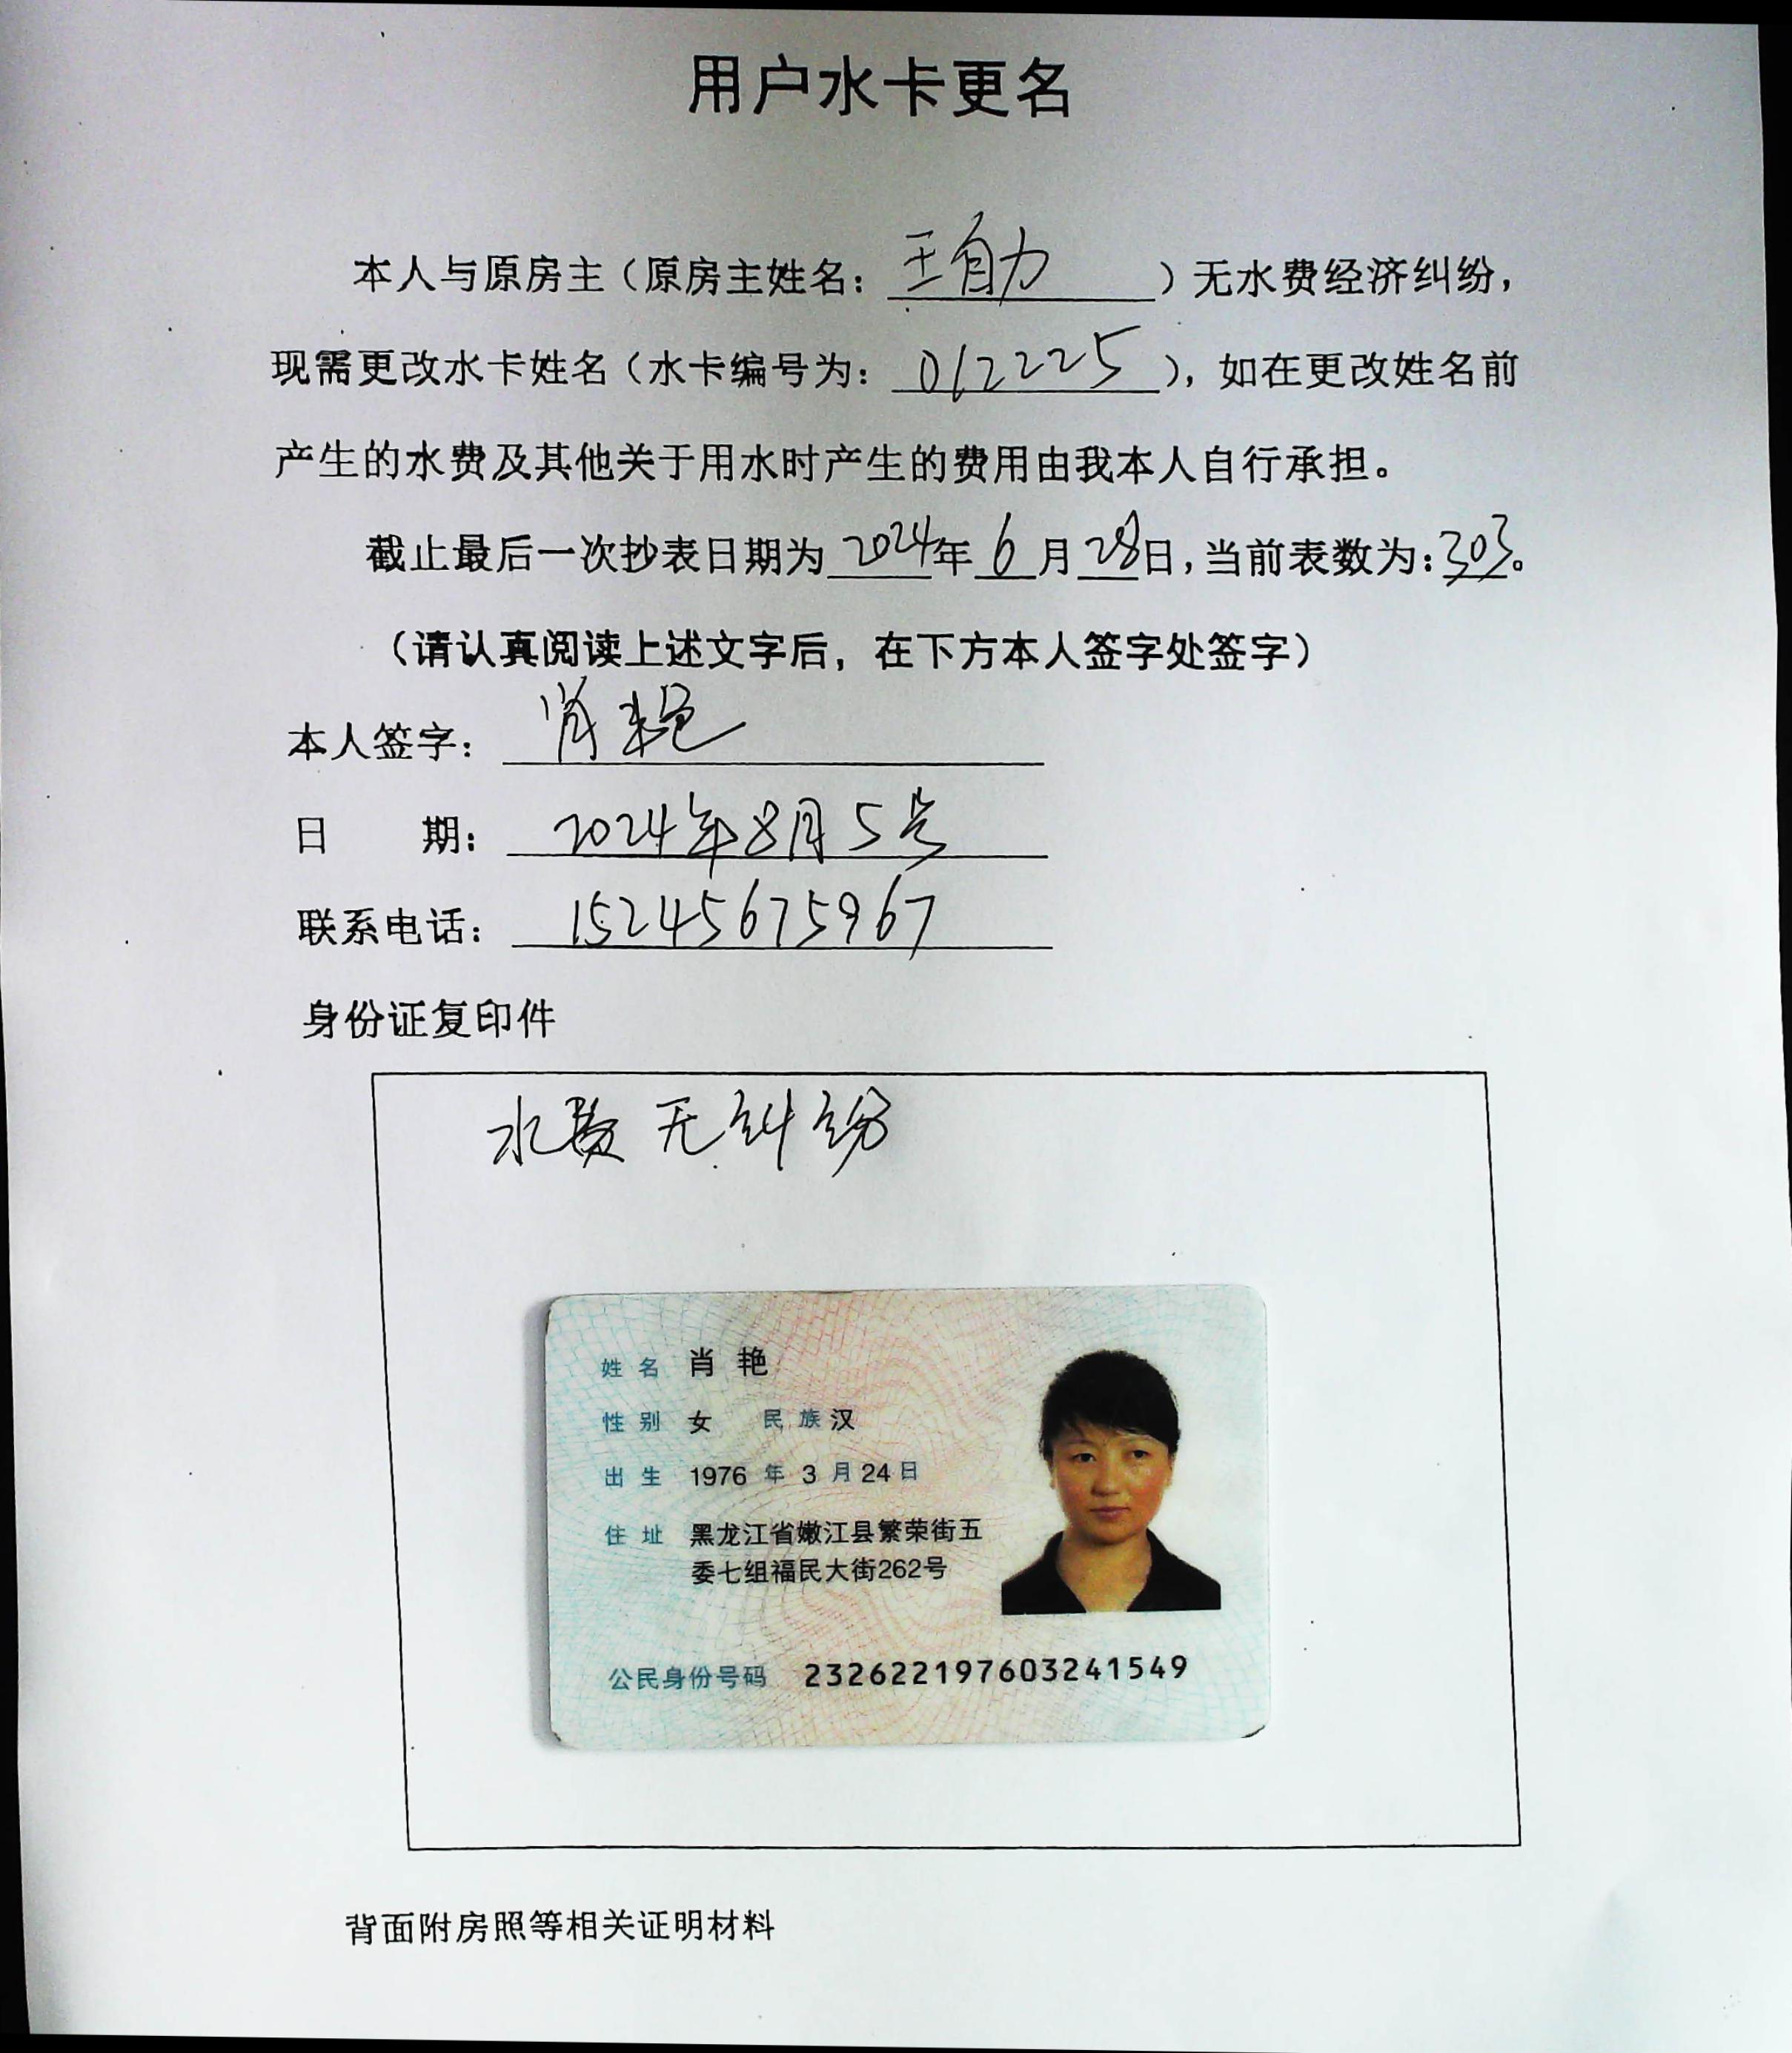 用户水卡更名
本人与原房主（原房主姓名：王自力）无水费经济纠纷，
现需更改水卡姓名（水卡编号为：012225），如在更改姓名前
产生的水费及其他关于用水时产生的费用由我本人自行承担。
截止最后一次抄表日期为2024年6月28日，当前表数为：303。
（请认真阅读上述文字后，在下方本人签字处签字）
本人签字：肖艳
日 期：2024年8月5号
联系电话：15245675967
身份证复印件
水费无纠纷
姓名 肖艳
性别 女 民族 汉
出生 1976 年 3 月 24 日
住址 黑龙江省嫩江县繁荣街五
委七组福民大街262号
公民身份号码 232622197603241549
背面附房照等相关证明材料